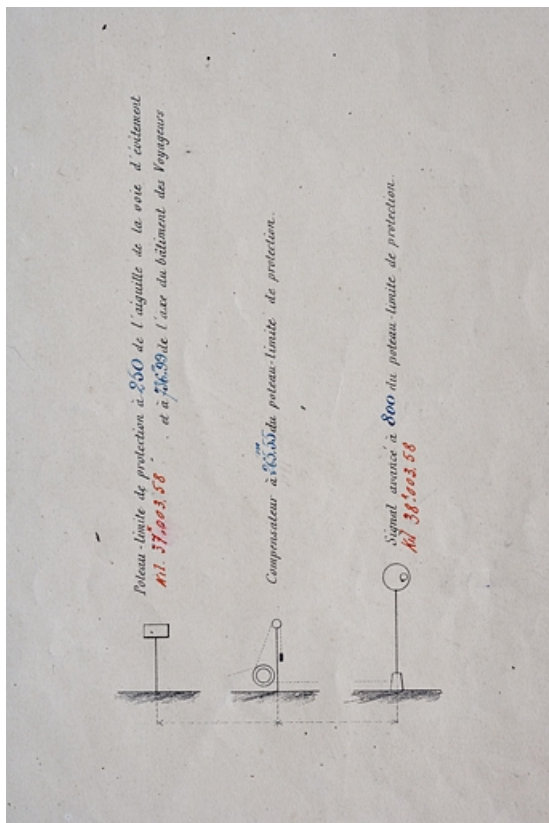 Poteau-limite de protection à 250 de l'aiguille de la voie d'évitement
et à de l'axe du bâtiment des Voyageurs
Kil. 37.003.58
Compensateur à du poteau-limite de protection.
Signal avancé à 800 du poteau-limite de protection.
Kil 38.003.58